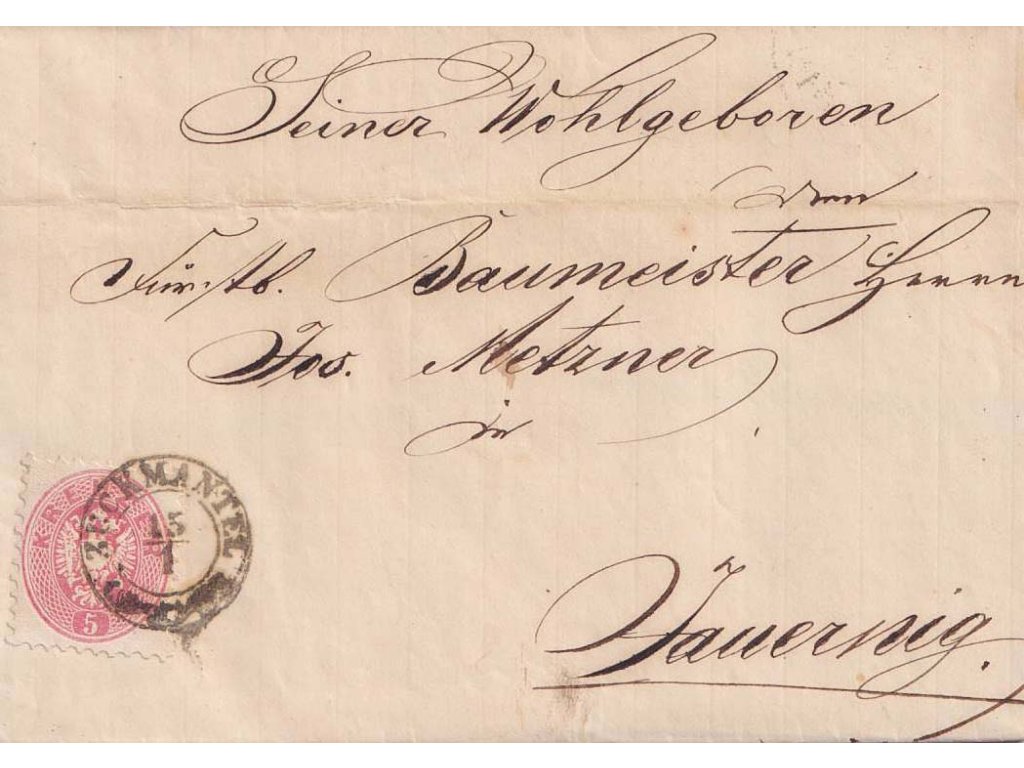 Seiner Wohlgeboren
dem
Fürstb. Baumeister Herrn
Jos. Metzner
in
Jauernig.
KREUZER
5
ZECKMANTEL
15
1